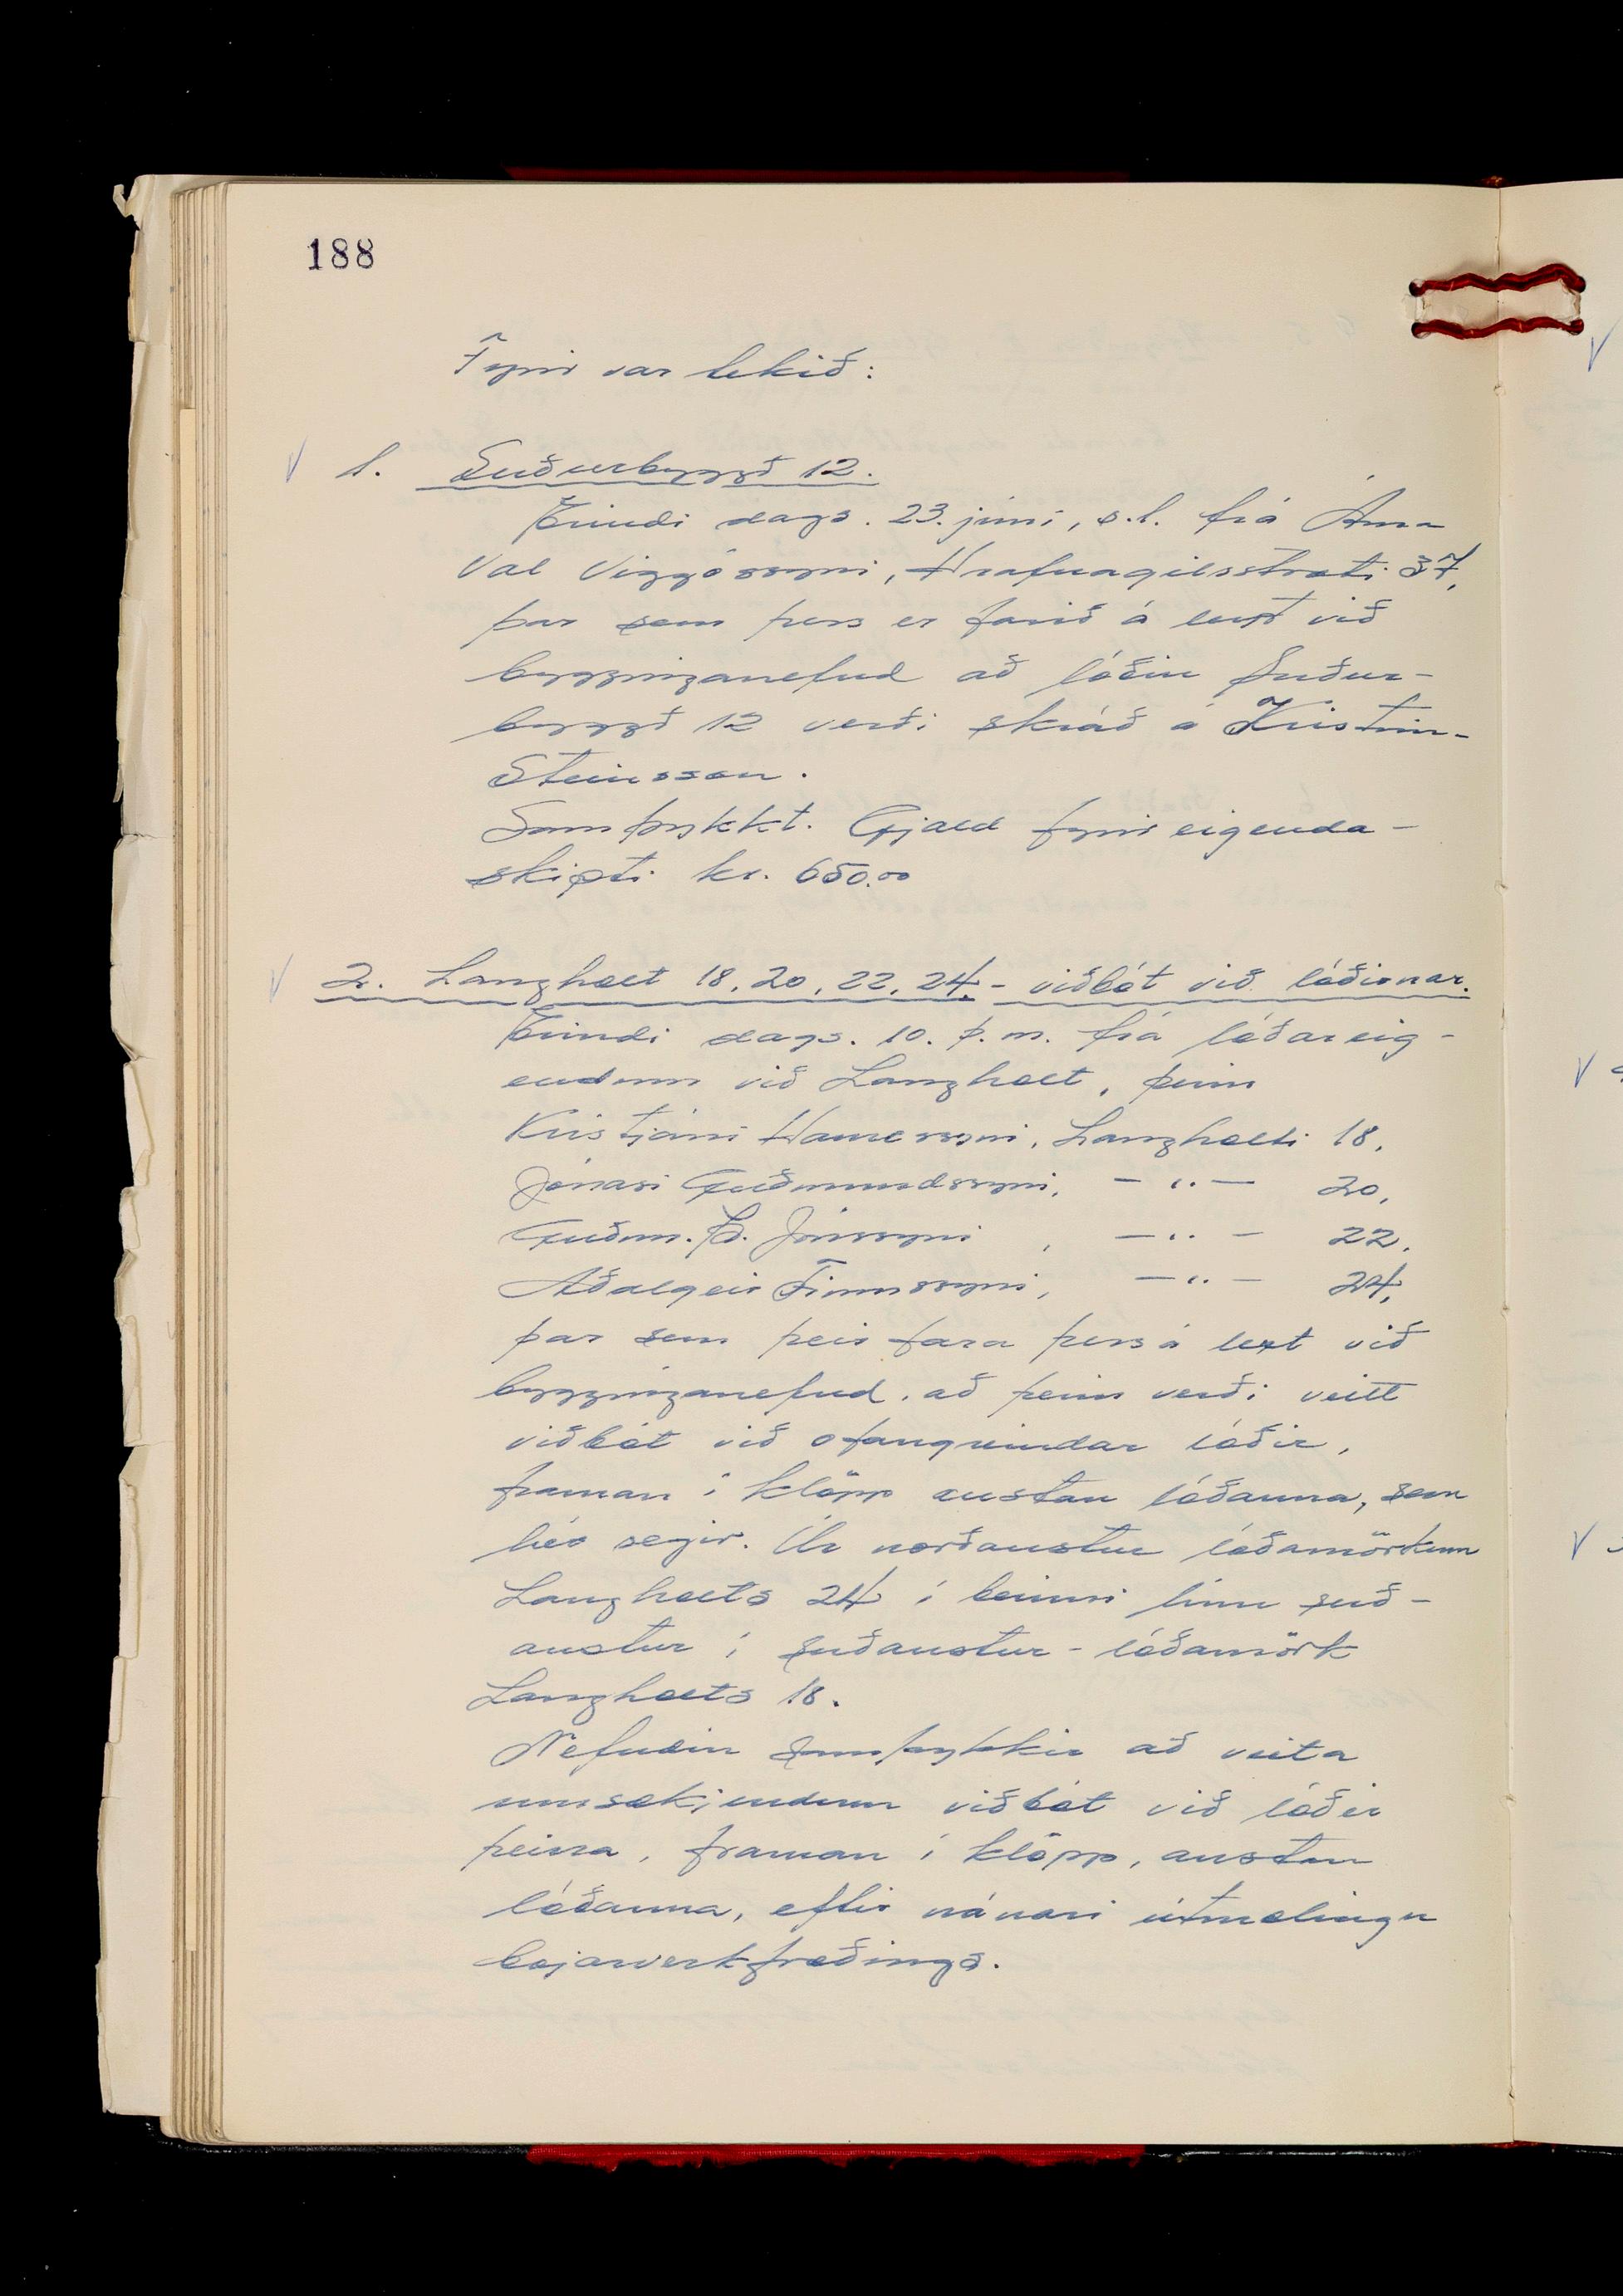 188
Fyrir var tekið:
1. Suðurbyggð 12.
Erindi dags. 23. júní, s.l. frá Árna
Val Viggóssyni, Hrafnagilsstræti 37,
þar sem þess er farið á leit við
bygginganefnd að lóðin Suður-
byggð 12 verði skráð á Kristinn
Steinsson.
Samþykkt. Gjald fyrir eigenda-
skipti kr. 650.00
2. Langholt 18, 20, 22, 24. - viðbót við lóðirnar.
Erindi dags. 10. þ.m. frá lóðareig-
endum við Langholt, þeim
Kristjáni Hannessyni, Langholti 18,
Jónasi Guðmundssyni, - " - 20,
Guðm. Þ. Jónssyni , - " - 22,
Aðalgeir Finnssyni, - " - 24,
þar sem þeir fara þess á leit við
bygginganefnd, að þeim verði veitt
viðbót við ofangreindar lóðir,
framan í klöpp austan lóðanna, sem
hér segir. Úr norðaustur lóðamörkum
Langholts 24 í beinni línu suð-
austur í suðaustur-lóðamörk
Langholts 18.
Nefndin samþykkir að veita
umsækjendum viðbót við lóðir
þeirra, framan í klöpp, austan
lóðanna, eftir nánari útmælingu
bæjarverkfræðings.